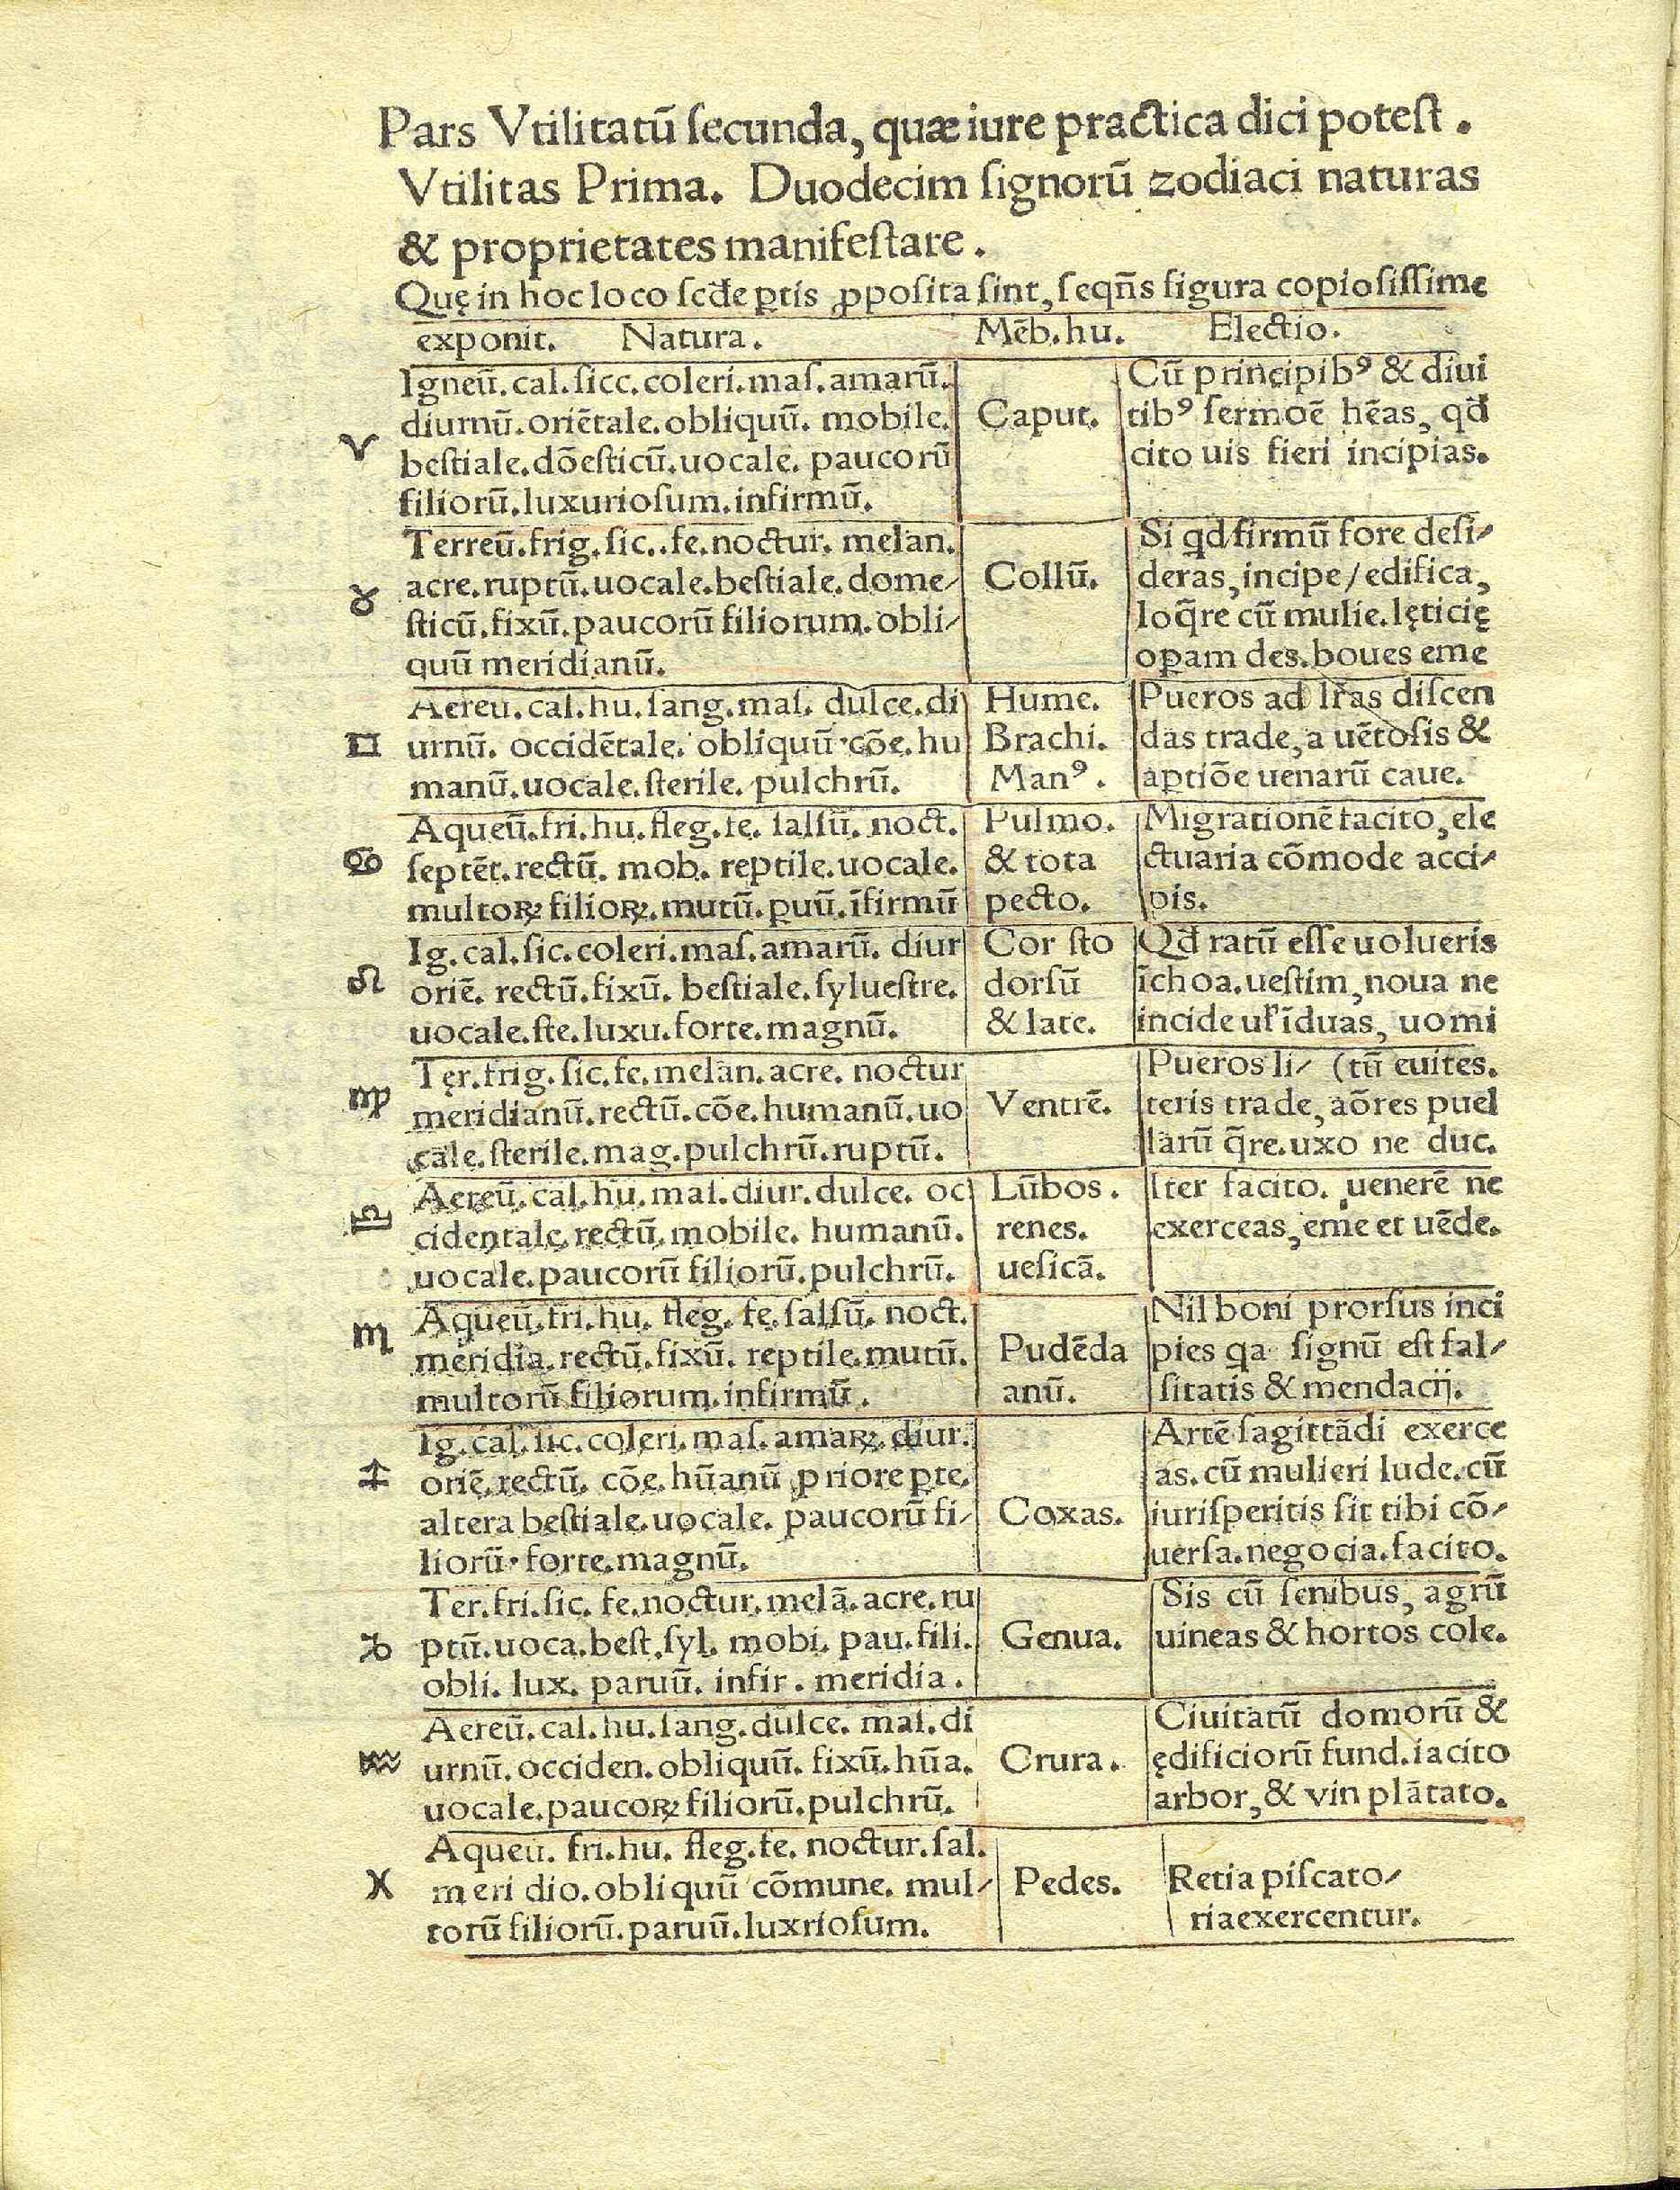 Pars Vtilitatū ſecunda, quæ iure practica dici poteſt.
Vtilitas Prima. Duodecim ſignorū zodiaci naturas
& proprietates manifeſtare.
Quę in hoc loco ſcd̄e ꝑtis ꝓpoſita ſint, ſeqn̄s figura copioſiſſime
exponit. Natura. Mēb.hu. Electio.
♈
Igneū.cal.ſicc.coleri.maſ.amarū.
diurnū.oriētale.obliquū. mobile.
beſtiale.dōeſticū.uocale. paucorū
filiorū.luxurioſum.infirmū.
Caput.
Cū principibꝰ & diui
tibꝰ ſermoē hēas, qd̄
cito uis fieri incipias.
♉
Terreū.frig.ſic..fe.noctur. melan.
acre.ruptū.uocale.beſtiale.dome⸗
ſticū.fixū.paucorū filiorum.obli⸗
quū meridianū.
Collū.
Si qd firmū fore deſi⸗
deras, incipe/edifica,
loq̄re cū mulie.lęticię
oꝑam des.boues eme
♊
Aereū.cal.hu.ſang.maſ. dulce.di
urnū. occidētale. obliquū.cōe.hu
manū.uocale.ſterile. pulchrū.
Hume.
Brachi.
Manꝰ.
Pueros ad lr̄as diſcen
das trade, a uētoſis &
aptiōe uenarū caue.
♋
Aqueū.fri.hu.fleg.fe. ſalſū. noct.
ſeptēt.rectū. mob. reptile.uocale.
multoꝝ filioꝝ.mutū.ꝑuū.īfirmū
Pulmo.
& tota
pecto.
Migrationē facito, ele
ctuaria cōmode acci⸗
pis.
♌
Ig.cal.ſic.coleri.maſ.amarū. diur
oriē. rectū.fixū. beſtiale.ſylueſtre.
uocale.ſte.luxu.forte.magnū.
Cor ſto
dorſū
& late.
Qd̄ ratū eſſe uolueris
īchoa.ueſtim, noua ne
incide ul̄ īduas, uomi
♍
Tęr.frig.ſic.fe.melan.acre. noctur
meridianū.rectū.cōe.humanū.uo
cale.ſterile.mag.pulchrū.ruptū.
Ventrē.
Pueros li⸗ (tū euites.
teris trade, aōres puel
larū q̄re.uxo ne duc.
♎
Aereū.cal.hu.maſ.diur.dulce. oc
cidentale.rectū.mobile. humanū.
uocale.paucorū filiorū.pulchrū.
Lūbos.
renes.
ueſicā.
Iter facito. uenerē ne
exerceas, eme et uēde.
♏
Aqueū.fri.hu. fleg. fe.ſalſū. noct.
meridia.rectū.fixū. reptile.mutū.
multorū filiorum.infirmū.
Pudēda
anū.
Nil boni prorſus inci
pies qa ſignū eſt fal⸗
ſitatis & mendacij.
♐
Ig.cal.ſic.coleri.maſ.amaꝝ.diur.
oriē.rectū. cōe.hūanū priore ꝑte.
altera beſtiale.uocale. paucorū fi⸗
liorū.forte.magnū.
Coxas.
Artē ſagittādi exerce
as.cū mulieri lude.cū
iuriſperitis ſit tibi cō⸗
uerſa.negocia.facito.
♑
Ter.fri.ſic. fe.noctur.melā.acre.ru
ptū.uoca.beſt.ſyl. mobi. pau.fili.
obli. lux. paruū. infir. meridia.
Genua.
Sis cū ſenibus, agrū
uineas & hortos cole.
♒
Aereū.cal.hu.ſang.dulce. maſ.di
urnū.occiden.obliquū. fixū.hūa.
uocale.paucoꝝ filiorū.pulchrū.
Crura.
Ciuitatū domorū &
ędificiorū fund.iacito
arbor, & vin plātato.
♓
Aqueū. fri.hu. fleg.fe. noctur.ſal.
meri dio.obliquū cōmune. mul⸗
torū filiorū.paruū.luxrioſum.
Pedes.
Retia piſcato⸗
riaexercentur.